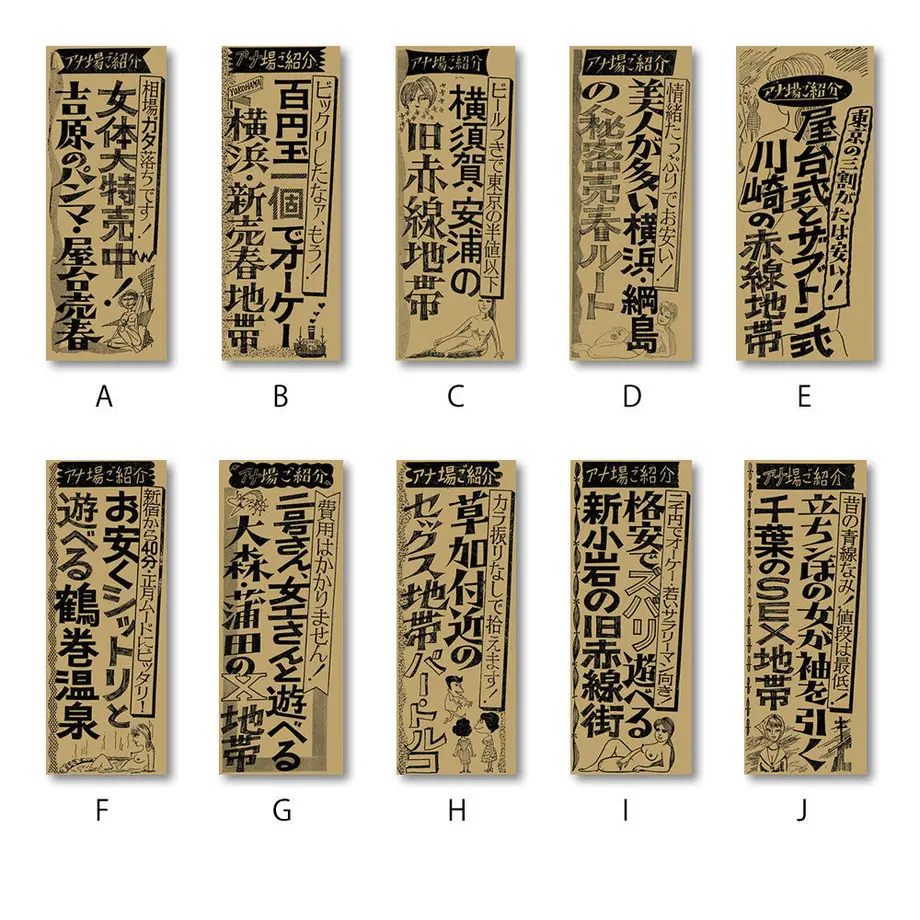 アナ場ご紹介
相場ガタ落ちです!
女体大特売中!
吉原のパンマ・屋台売春
A
アナ場ご紹介
YOKOHAMA
ビックリしたなァ、もう!
百円玉一個でオーケー
横浜・新売春地帯
B
アナ場ご紹介
ビールつきで東京の半値以下
横須賀・安浦の
旧赤線地帯
C
アナ場ご紹介
情緒たっぷりでお安い!
美人が多い横浜・綱島
の秘密売春ルート
D
アナ場ご紹介
東京の三割がたは安い!
屋台式とザブトン式
川崎の赤線地帯
E
アナ場ご紹介
新宿から40分・正月ムードにピッタリ!
お安くシットリと
遊べる鶴巻温泉
F
アナ場ご紹介
費用はかかりません!
二号さん女工さんと遊べる
大森・蒲田のX地帯
G
アナ場ご紹介
カラ振りなしで拾えます!
草加付近の
セックス地帯バートルコ
H
アナ場ご紹介
二千円でオーケー・若いサラリーマン向き!
格安でズバリ遊べる
新小岩の旧赤線街
I
アナ場ご紹介
昔の青線なみ!値段は最低!
立ちンぼの女が袖を引く
千葉のSEX地帯
J